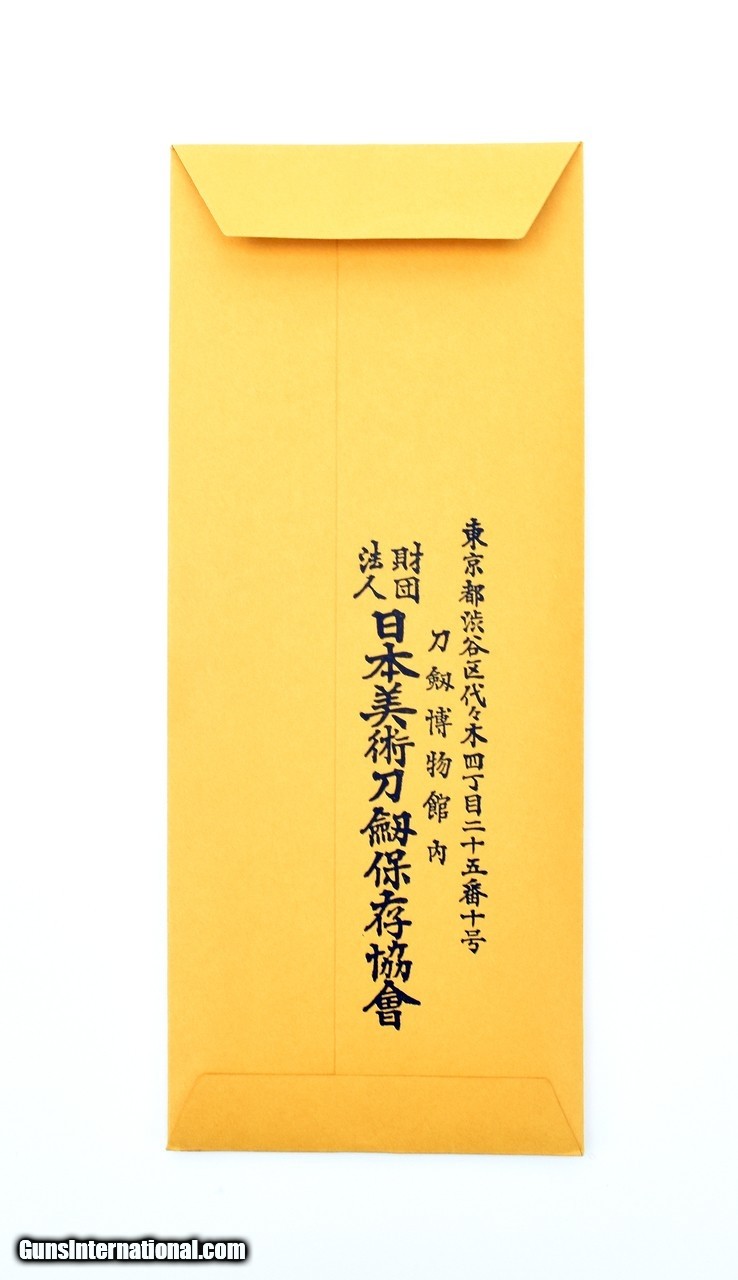 東京都渋谷区代々木四丁目二十五番十号
刀剱博物館内
財団
法人
日本美術刀剱保存協會
GunsInternational.com